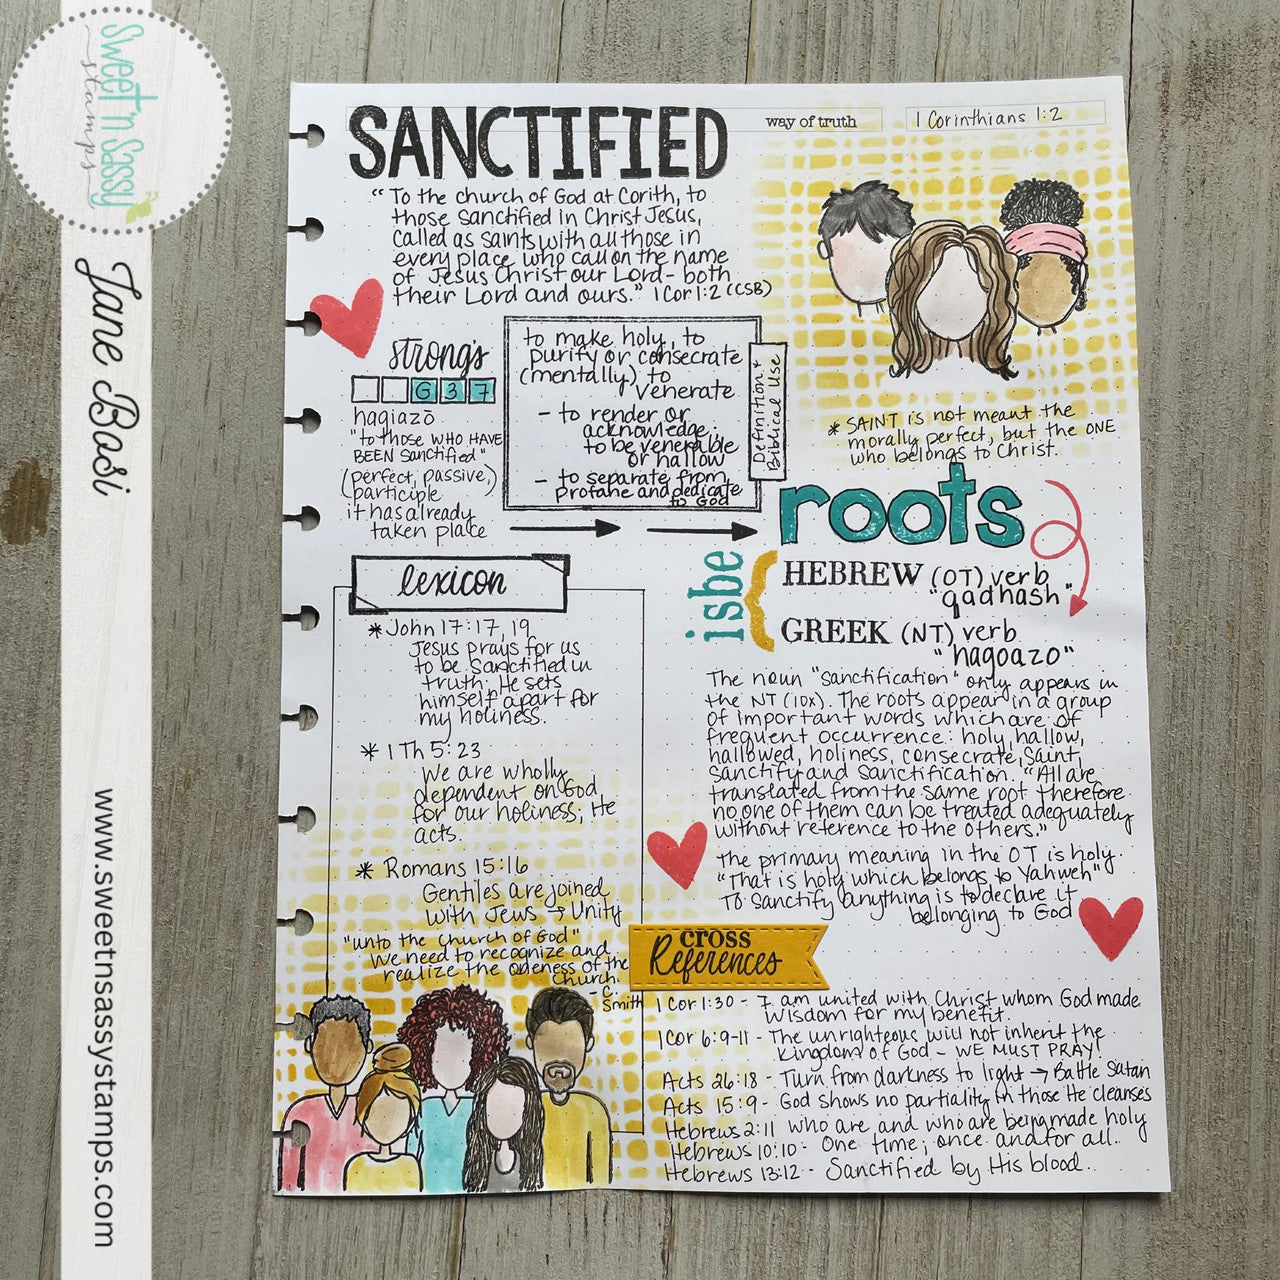 Sweet 'n Sassy
stamps
Jane Basi
www.sweetnsassystamps.com
SANCTIFIED
way of truth
1 Corinthians 1:2
"To the church of God at Corith, to
those sanctified in Christ Jesus,
called as saints with all those in
every place who call on the name
of Jesus Christ our Lord - both
their Lord and ours." 1 Cor 1:2 (CSB)
strong's
G 3 7
hagiazō
"to those WHO HAVE
BEEN Sanctified"
(perfect, passive,)
participle
it has already
taken place
to make holy, to
purify or consecrate
(mentally) to
venerate
- to render or
acknowledge;
to be venerable
or hallow
- to separate from
profane and dedicate
to God
Definition +
Biblical Use
* SAINT is not meant the
morally perfect, but the ONE
who belongs to Christ.
roots
isbe
HEBREW (OT) verb
"qadhash"
GREEK (NT) verb
"hagoazo"
The noun "sanctification" only appears in
the NT (10x). The roots appear in a group
of important words which are of
frequent occurrence: holy, hallow,
hallowed, holiness, consecrate, saint,
sanctify and sanctification. "All are
translated from the same root therefore
no one of them can be treated adequately
without reference to the others."
The primary meaning in the OT is holy.
"That is holy which belongs to Yahweh"
To sanctify anything is to declare it
belonging to God
lexicon
* John 17:17, 19
Jesus prays for us
to be sanctified in
truth. He sets
himself apart for
my holiness.
* 1 Th 5:23
We are wholly
dependent on God
for our holiness; He
acts.
* Romans 15:16
Gentiles are joined
with Jews → Unity
"unto the church of God"
We need to recognize and
realize the oneness of the
church.
- C.
Smith
CROSS
References
1 Cor 1:30 - I am united with Christ whom God made
Wisdom for my benefit.
1 Cor 6:9-11 - The unrighteous will not inherit the
Kingdom of God - WE MUST PRAY!
Acts 26:18 - Turn from darkness to light → Battle Satan
Acts 15:9 - God shows no partiality in those He cleanses
Hebrews 2:11 who are and who are being made holy
Hebrews 10:10 - One time; once and for all.
Hebrews 13:12 - Sanctified by His blood.